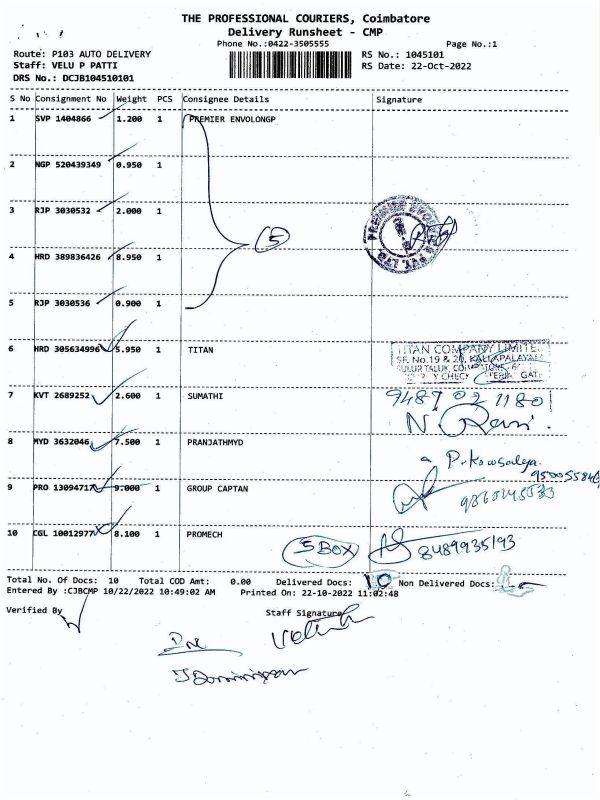 THE PROFESSIONAL COURIERS, Coimbatore
Delivery Runsheet - CMP
Phone No.:0422-3505555
Page No.:1
Route: P103 AUTO DELIVERY
RS No.: 1045101
Staff: VELU P PATTI
RS Date: 22-Oct-2022
DRS No.: DCJB104510101
S No Consignment No Weight PCS Consignee Details Signature
1 SVP 1404866 1.200 1 PREMIER ENVOLONGP
2 NGP 520439349 0.950 1
3 RJP 3030532 2.000 1
5
4 HRD 389836426 8.950 1
5 RJP 3030536 0.900 1
6 HRD 305634996 5.950 1 TITAN
TITAN COMPANY LIMITED
SF. No.19 & 20, KALLAPALAYAM
SULUR TALUK,
7 KVT 2689252 2.600 1 SUMATHI
9487 02 1180
N. Ravi.
8 MYD 3632046 7.500 1 PRANJATHMYD
P. Kowsalya.
9 PRO 13094717 9.000 1 GROUP CAPTAN
10 CGL 10012977 8.100 1 PROMECH
5 BOX
8489935193
Total No. Of Docs: 10 Total COD Amt: 0.00 Delivered Docs: 10 Non Delivered Docs:
Entered By :CJBCMP 10/22/2022 10:49:02 AM Printed On: 22-10-2022 11:02:48
Verified By
Staff Signature